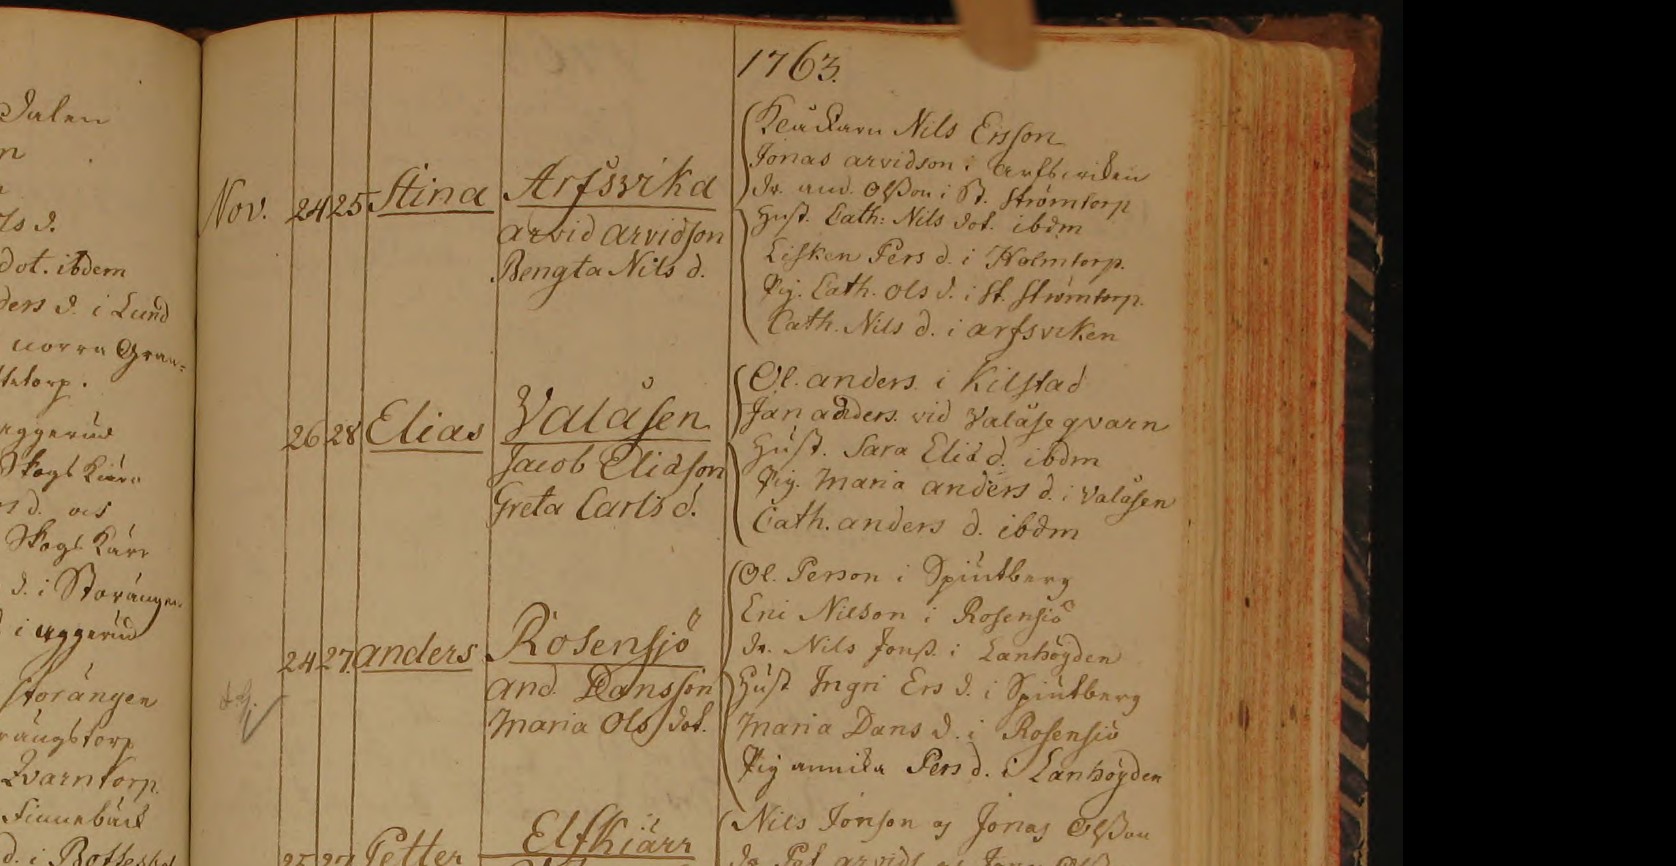 Dalen
n
ls d.
dot. ibdem
ders d. i Lund
norra Gran=
torp.
eggerud
Skogs Kärr
s d. och
Skogs Kärr
d. i Storängen
i eggerud
storängen
rängstorp
Qvarntorp.
Finnebäck
d. i
1763.
Nov. 24 25 Stina Arfsvika
arvid arvidson
Bengta Nils d.
Nils Ersson
Jonas arvidson i arfsviken
dr. and. Olsson i St. Strömtorp
Hust. Cath: Nils dot. ibdm
Lisken Pers d. i Holmtorp.
Pig. Cath. Ols d. i St. Strömtorp.
Cath. Nils d. i arfsviken
26 28 Elias Valåsen
Jacob Eliason
Greta Carls d.
Ol. anders. i Kilstad
Jan anders. vid Valåse qvarn
Hust. Sara Elia d. ibdm
Pig. Maria anders d. i Valåsen
Cath. anders d. ibdm
24 27. anders Rosensjö
and. Dansson
Maria Ols dot.
Ol. Person i Spintberg
Eric Nilson i Rosensiö
dr. Nils Jonss. i Lanhögden
Hust Ingri Ers d. i Spintberg
Maria Dans d. i Rosensiö
Pig annika Pers d. i Lanhögden
25 27 Petter Elfkiärr
Nils Jonson og Jonas Olsson
dr. Pet arvids